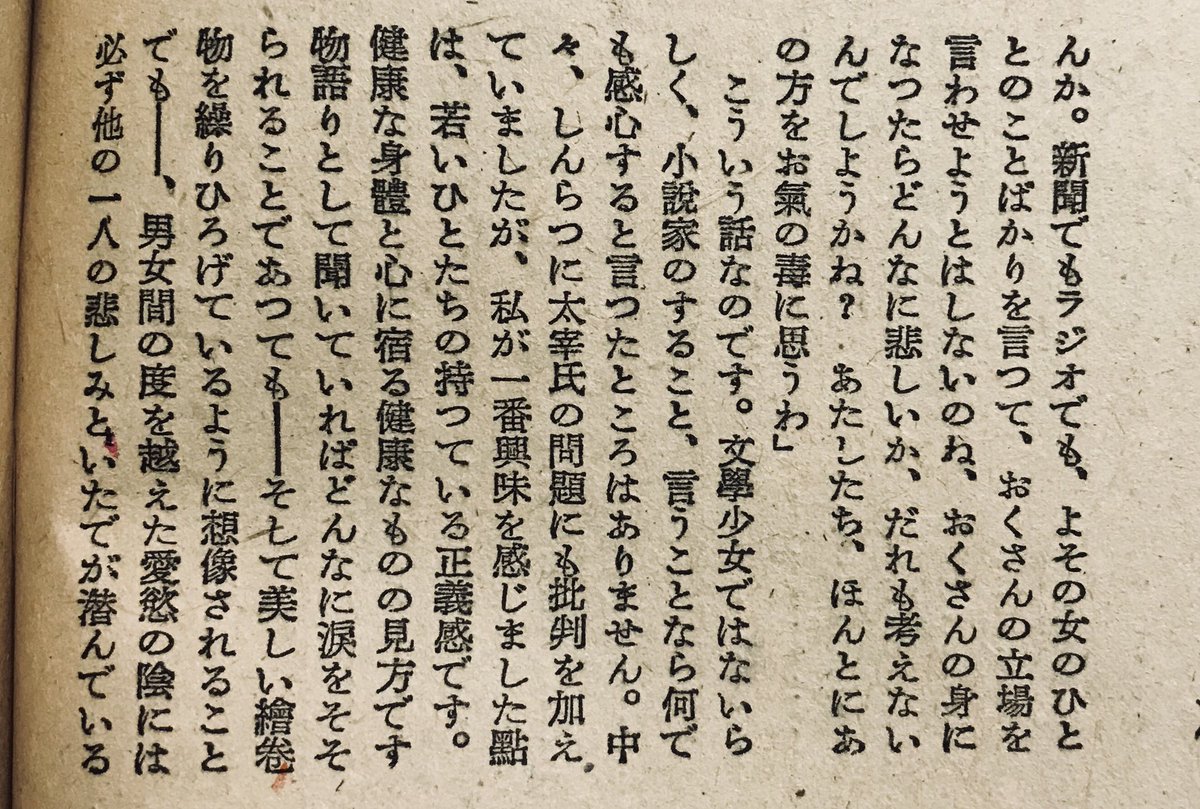 んか。新聞でもラジオでも、よその女のひと
とのことばかりを言つて、おくさんの立場を
言わせようとはしないのね、おくさんの身に
なつたらどんなに悲しいか、だれも考えない
んでしようかね？　あたしたち、ほんとにあ
の方をお氣の毒に思うわ」
　こういう話なのです。文學少女ではないら
しく、小説家のすること、言うことなら何で
も感心すると言つたところはありません。中
々、しんらつに太宰氏の問題にも批判を加え
ていましたが、私が一番興味を感じました點
は、若いひとたちの持つている正義感です。
健康な身體と心に宿る健康なものの見方です
物語りとして聞いていればどんなに涙をそそ
られることであつても――そして美しい繪卷
物を繰りひろげているように想像されること
でも――、男女間の度を越えた愛慾の陰には
必ず他の一人の悲しみと、いたでが潜んでいる